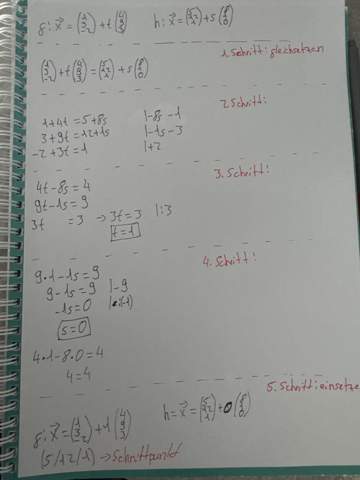 g: x⃗ = (1 3 -2) + t (4 9 3) h: x⃗ = (5 12 1) + s (8 1 0)
1. Schritt: gleichsetzen
(1 3 -2) + t (4 9 3) = (5 12 1) + s (8 1 0)
2. Schritt:
1+4t = 5+8s |-8s -1
3+9t = 12+1s |-1s -3
-2+3t = 1 |+2
3. Schritt:
4t-8s = 4
9t-1s = 9
3t = 3 → 3t = 3 |:3
t=1
4. Schritt:
9·1-1s = 9
9-1s = 9 |-9
-1s = 0 |:(-1)
s=0
4·1-8·0 = 4
4=4
5. Schritt: einsetze
g: x⃗ = (1 3 -2) + 1 (4 9 3) h = x⃗ = (5 12 1) + 0 (8 1 0)
(5/12/1) → Schnittpunkt